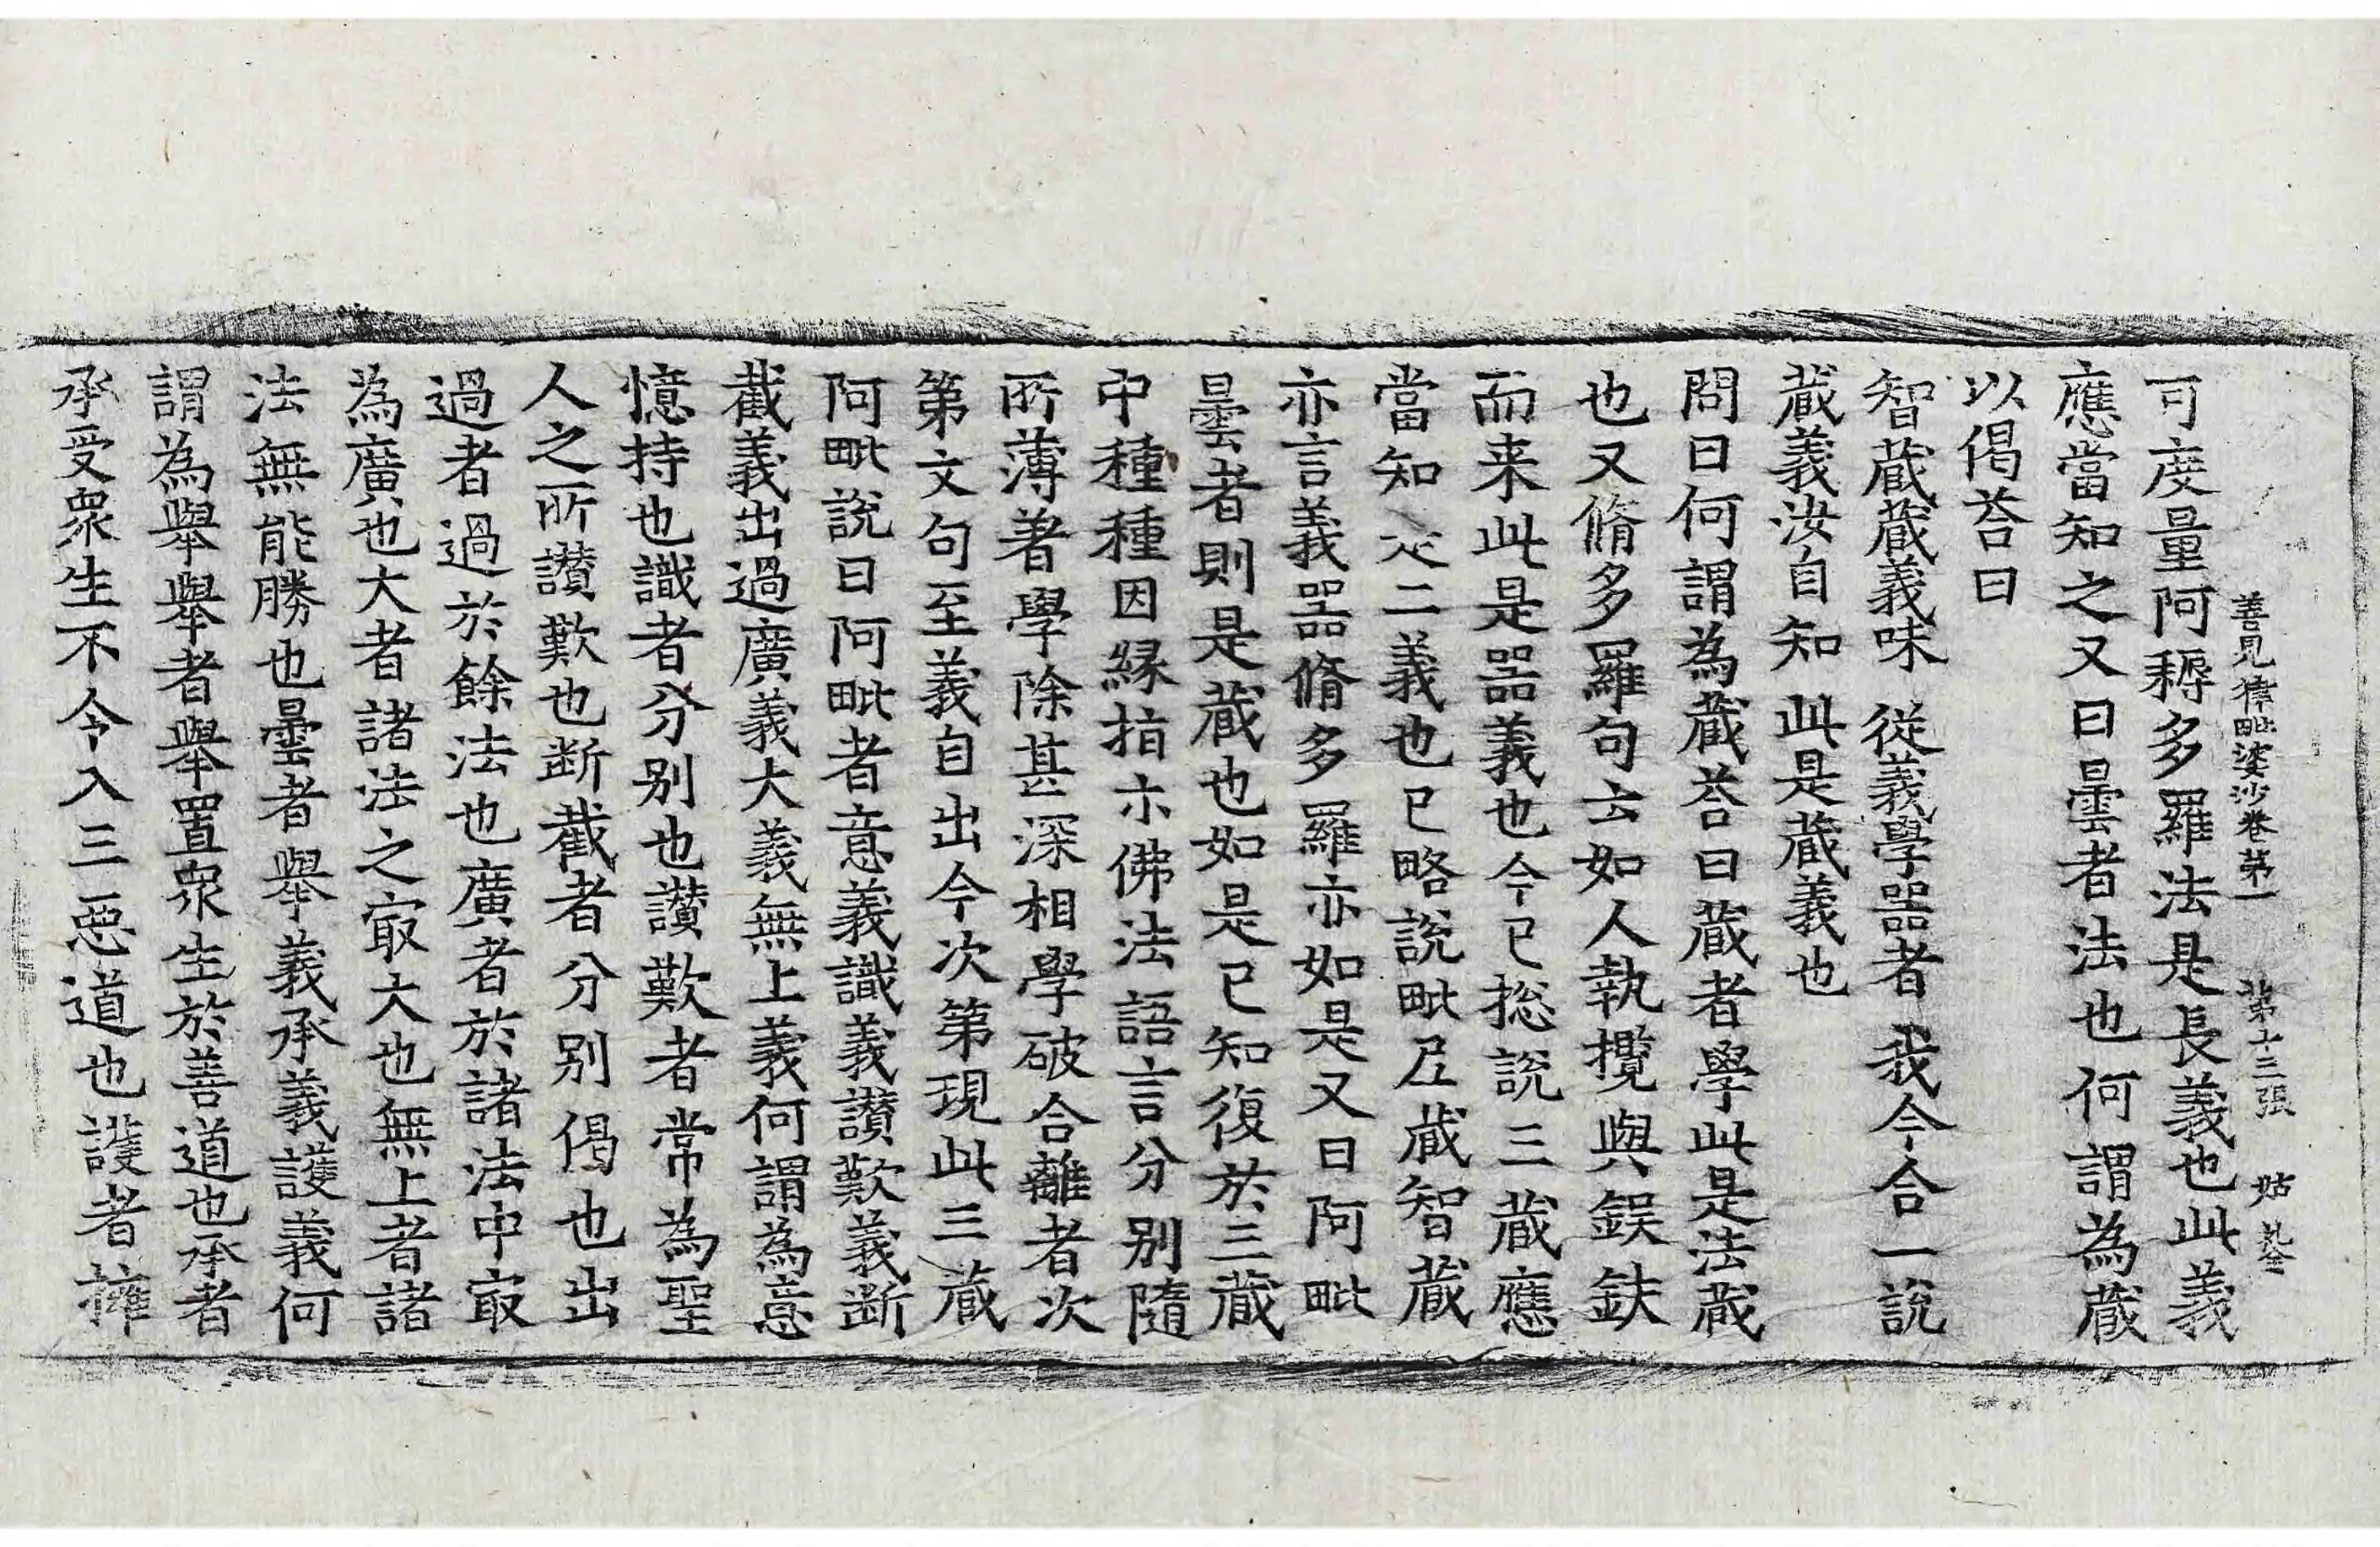 善見律毗婆沙卷第一 第十三張 姑
可度量阿耨多羅法是長義也此義
應當知之又曰曇者法也何謂為蔵
以偈荅曰
智蔵蔵義味 從義學器者 我今合一說
蔵義汝自知 此是蔵義也
問曰何謂為蔵荅曰蔵者學此是法蔵
也又脩多羅句云如人執攬與鋘鈇
而来此是器義也今已捴說三蔵應
當知之二義也已略說毗尼蔵智蔵
亦言義器脩多羅亦如是又曰阿毗
曇者則是蔵也如是已知復於三蔵
中種種因縁指示佛法語言分別隨
所薄著學除甚深相學破合離者次
第文句至義自出今次第現此三蔵
阿毗說曰阿毗者意義識義讃歎義断
截義出過廣義大義無上義何謂為意
憶持也識者分别也讃歎者常為聖
人之所讃歎也断截者分别偈也出
過者過於餘法也廣者於諸法中㝡
為廣也大者諸法之㝡大也無上者諸
法無能勝也曇者舉義承義護義何
謂為舉舉者舉置衆生於善道也承者
承受衆生不令入三惡道也護者擁